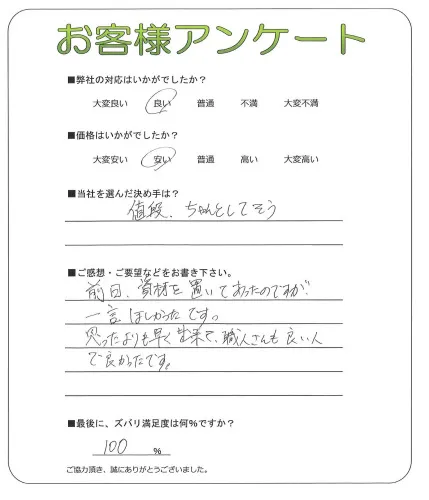 お客様アンケート
■弊社の対応はいかがでしたか？
大変良い 良い 普通 不満 大変不満
■価格はいかがでしたか？
大変安い 安い 普通 高い 大変高い
■当社を選んだ決め手は？
値段、ちゃんとしてそう
■ご感想・ご要望などをお書き下さい。
前日、資材を置いてあったのですが
一言ほしかったです。
思ったよりも早く出来て、職人さんも良い人
で良かったです。
■最後に、ズバリ満足度は何％ですか？
100 %
ご協力頂き、誠にありがとうございました。